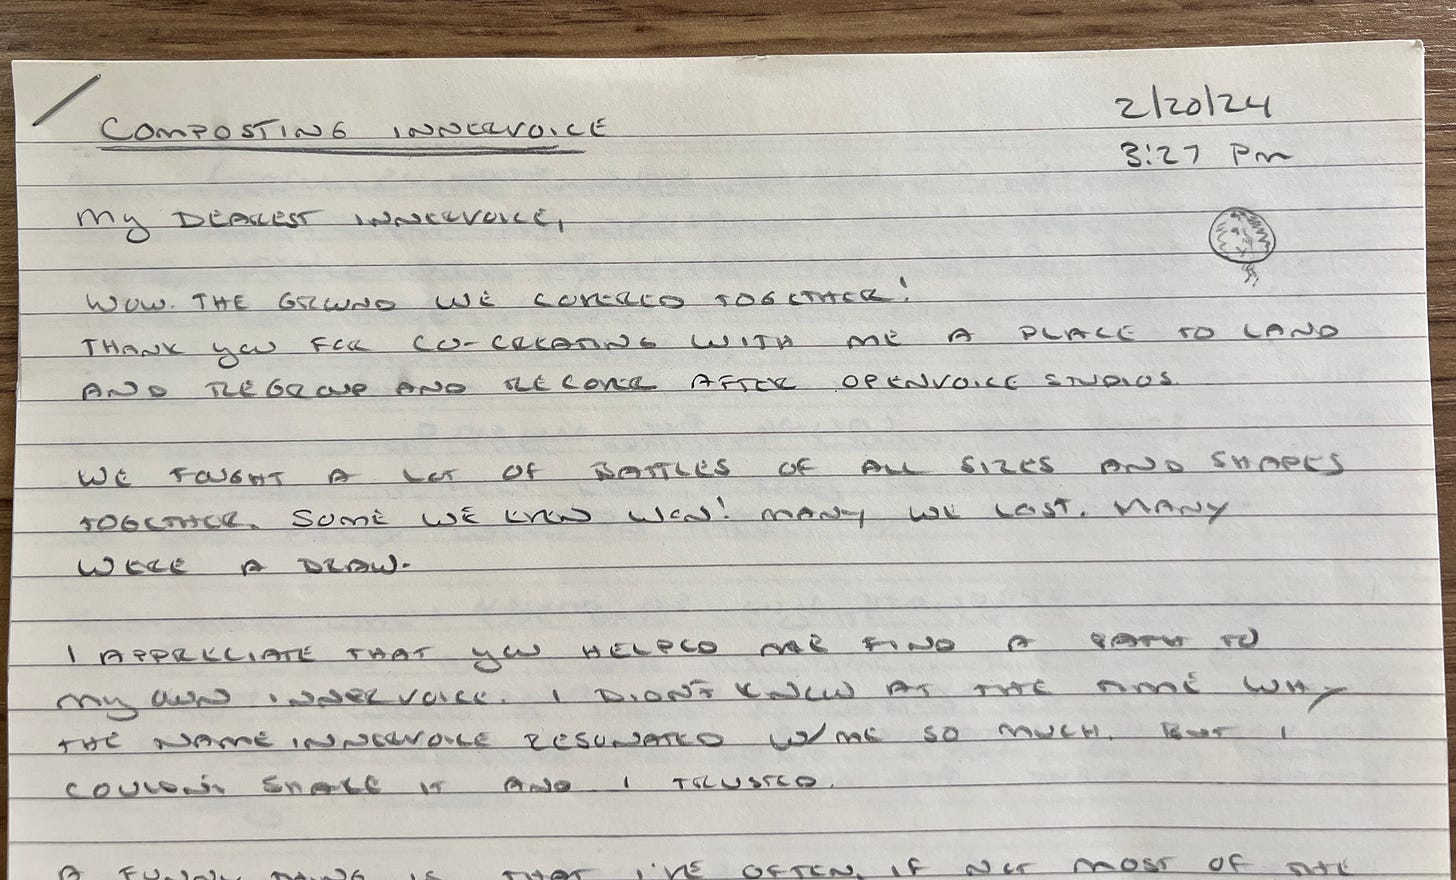 COMPOSTING INNERVOICE
2/20/24
3:27 PM
MY DEAREST INNERVOICE,
WOW. THE GROUND WE COVERED TOGETHER!
THANK YOU FOR CO-CREATING WITH ME A PLACE TO LAND
AND REGROUP AND RECOVER AFTER OPENVOICE STUDIOS.
WE FOUGHT A LOT OF BATTLES OF ALL SIZES AND SHAPES
TOGETHER. SOME WE EVEN WON! MANY WE LOST. MANY
WERE A DRAW.
I APPRECIATE THAT YOU HELPED ME FIND A PATH TO
MY OWN INNERVOICE. I DIDN'T KNOW AT THE TIME WHY
THE NAME INNERVOICE RESONATED W/ME SO MUCH. BUT I
COULDN'T SHAKE IT AND I TRUSTED.
A FUNNY THING IS THAT I'VE OFTEN, IF NOT MOST OF THE